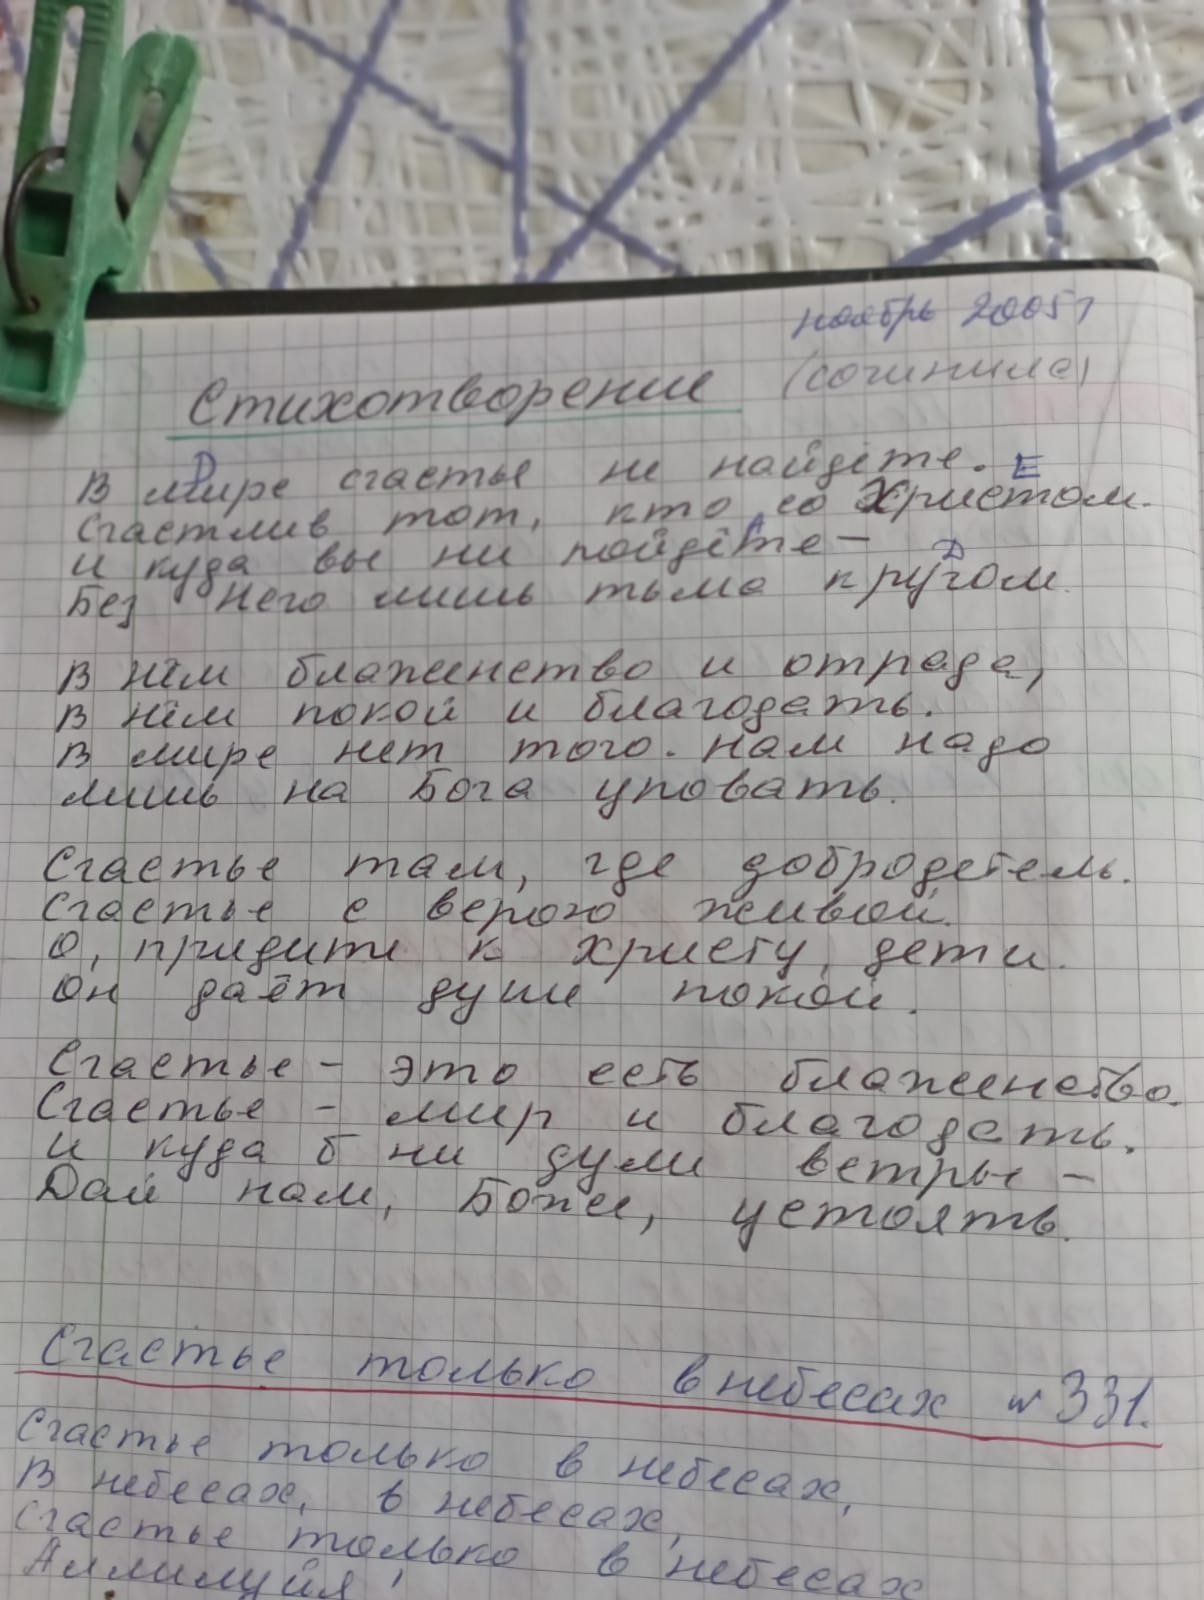 ноябрь 2005г
Стихотворение (сочинила)
D
В мире счастье не найдёте.
E
Счастлив тот, кто со Христом.
A
И куда вы ни пойдёте —
D
Без Него лишь тьма кругом.
В нём блаженство и отрада,
В нём покой и благодать.
В мире нет того. Нам надо
лишь на Бога уповать.
Счастье там, где добродетель.
Счастье с верою живой.
О, придите к Христу, дети.
Он даёт души покой.
Счастье – это есть блаженство.
Счастье – мир и благодать.
И куда б ни дули ветры –
Дай нам, Боже, устоять.
Счастье только в небесах № 331.
Счастье только в небесах,
В небесах, в небесах,
Счастье только в небесах
Аллилуйя!